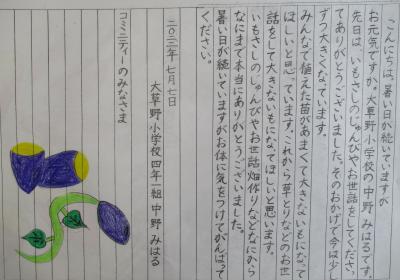 こんにちは。暑い日が続いていますが
お元気ですか。大草野小学校の中野みはるです。
先日は、いもさしのじゅんびやお世話をしてくださっ
てありがとうございました。そのおかげで今は少し
ずつ大きくなっています。
みんなで植えた苗があまくて大きないもになって
ほしいと思っています。これから草とりなどのお世
話をして大きないもになってほしいと思います。
いもさしのじゅんびやお世話、畑作りなどなにから
なにまで本当にありがとうございました。
暑い日が続いていますがお体に気をつけてがんばって
ください。
二〇二二年七月七日
大草野小学校四年一組 中野 みはる
コミニティーのみなさま